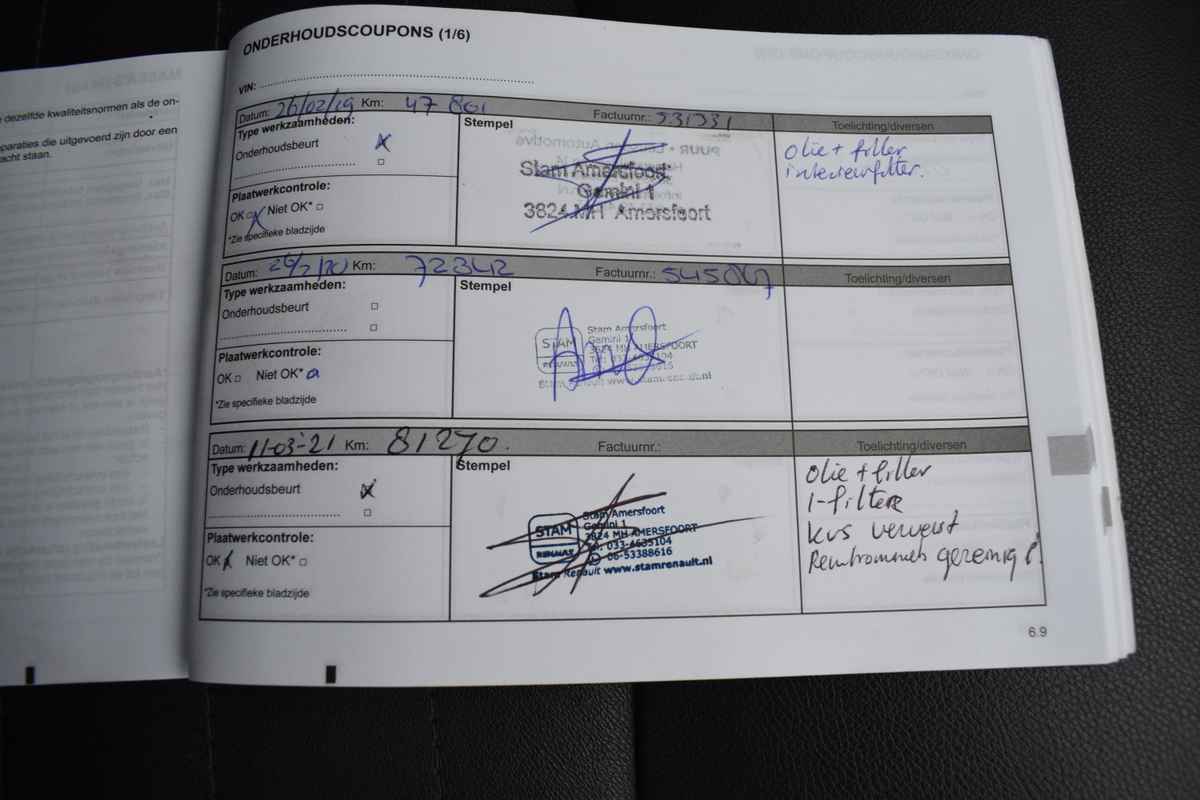 dezelfde kwaliteitsnormen als de on-
paraties die uitgevoerd zijn door een
acht staan.
ONDERHOUDSCOUPONS (1/6)
VIN:
Datum: 26/02/19 Km: 47 801 Factuurnr.: 531331 Toelichting/diversen
Type werkzaamheden:
Onderhoudsbeurt
Plaatwerkcontrole:
OK Niet OK*
*Zie specifieke bladzijde
Stempel
Stam Amersfoort
Gemini 1
3824 MH Amersfoort
Olie + filter
interieurfilter.
Datum: 26/2/20 Km: 72342 Factuurnr.: 545067 Toelichting/diversen
Type werkzaamheden:
Onderhoudsbeurt
Plaatwerkcontrole:
OK Niet OK*
*Zie specifieke bladzijde
Stempel
STAM
RENAULT
Stam Amersfoort
Gemini 1
3824 MH AMERSFOORT
Stam Renault www.stamrenault.nl
Datum: 11-03-'21 Km: 81270. Factuurnr.: Toelichting/diversen
Type werkzaamheden:
Onderhoudsbeurt
Plaatwerkcontrole:
OK Niet OK*
*Zie specifieke bladzijde
Stempel
STAM
RENAULT
Stam Amersfoort
Gemini 1
3824 MH AMERSFOORT
Tel: 033-4635104
06-53388616
Stam Renault www.stamrenault.nl
Olie + filter
I-filter
kvs ververst
Remtrommels gereinigd.
6.9